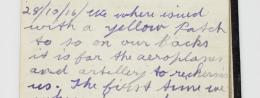 28/10/16/ We where issued
with a yellow Patch
to so on our backs
it is for the aeroplanes
and artillery to reckernise
us. The first time we